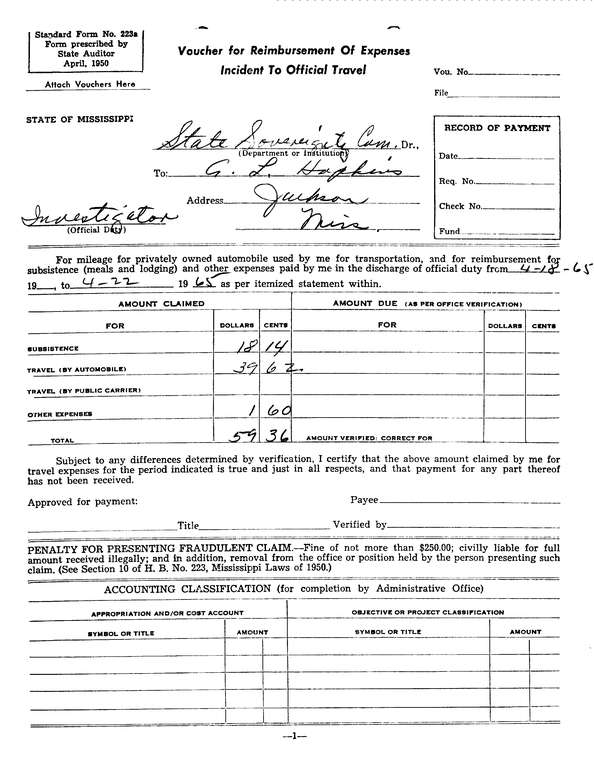 Standard Form No. 223a
Form prescribed by
State Auditor
April, 1950
Attach Vouchers Here
Voucher for Reimbursement Of Expenses
Incident To Official Travel
Vou. No.
File
STATE OF MISSISSIPPI
State Sovereignty Com. Dr.,
(Department or Institution)
To: G. L. Hopkins
Address Jackson
Miss.
Investigator
(Official Duty)
RECORD OF PAYMENT
Date
Req. No.
Check No.
Fund
For mileage for privately owned automobile used by me for transportation, and for reimbursement for
subsistence (meals and lodging) and other expenses paid by me in the discharge of official duty from 4-18-65
19 , to 4-22 1965 as per itemized statement within.
AMOUNT CLAIMED AMOUNT DUE (AS PER OFFICE VERIFICATION)
FOR DOLLARS CENTS FOR DOLLARS CENTS
SUBSISTENCE 18 14
TRAVEL (BY AUTOMOBILE) 39 62
TRAVEL (BY PUBLIC CARRIER)
OTHER EXPENSES 1 60
TOTAL 59 36 AMOUNT VERIFIED: CORRECT FOR
Subject to any differences determined by verification, I certify that the above amount claimed by me for
travel expenses for the period indicated is true and just in all respects, and that payment for any part thereof
has not been received.
Approved for payment: Payee
Title Verified by
PENALTY FOR PRESENTING FRAUDULENT CLAIM.—Fine of not more than $250.00; civilly liable for full
amount received illegally; and in addition, removal from the office or position held by the person presenting such
claim. (See Section 10 of H. B. No. 223, Mississippi Laws of 1950.)
ACCOUNTING CLASSIFICATION (for completion by Administrative Office)
APPROPRIATION AND/OR COST ACCOUNT OBJECTIVE OR PROJECT CLASSIFICATION
SYMBOL OR TITLE AMOUNT SYMBOL OR TITLE AMOUNT
—1—